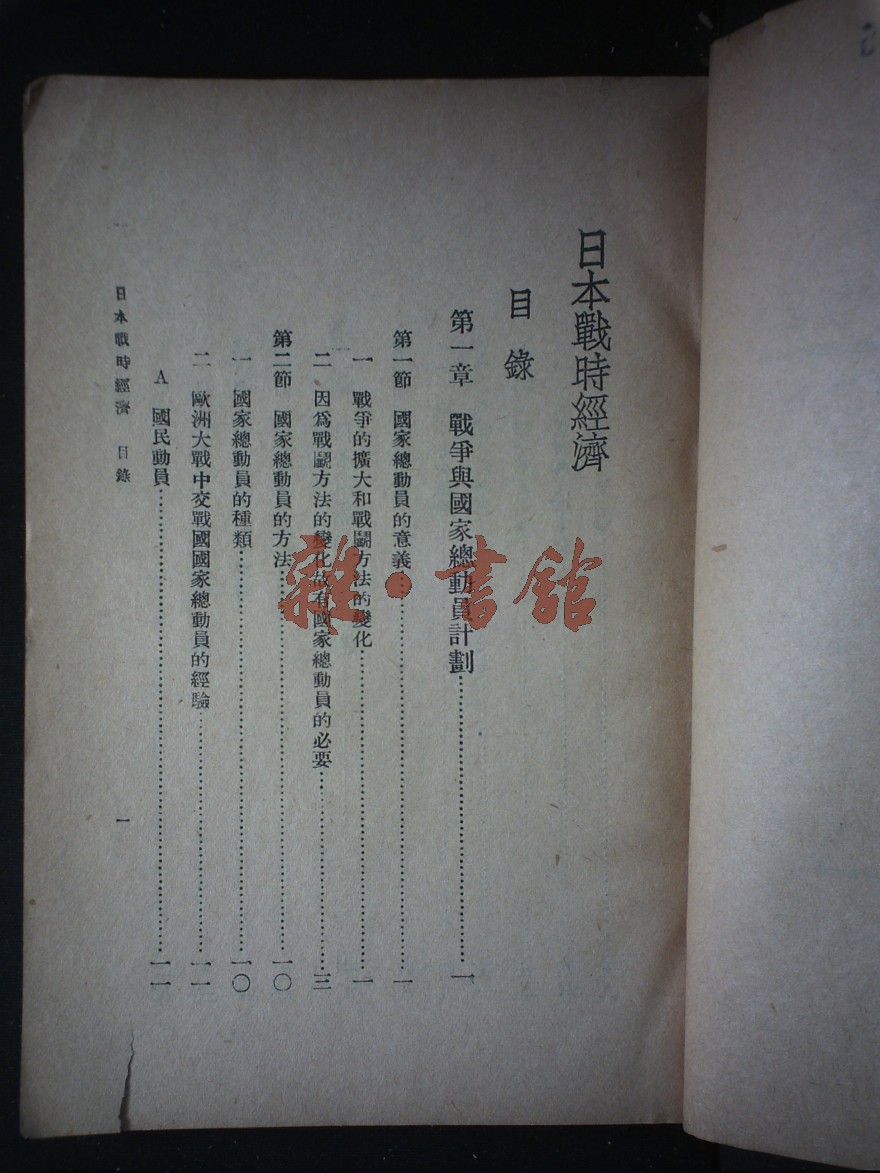 日本戰時經濟
目錄
第一章 戰爭與國家總動員計劃……一
第一節 國家總動員的意義……一
一 戰爭的擴大和戰鬭方法的變化……一
二 因爲戰鬭方法的變化故有國家總動員的必要……三
第二節 國家總動員的方法……一〇
一 國家總動員的種類……一〇
二 歐洲大戰中交戰國國家總動員的經驗……一一
A 國民動員……一一
日本戰時經濟 目錄 一
雜·書館